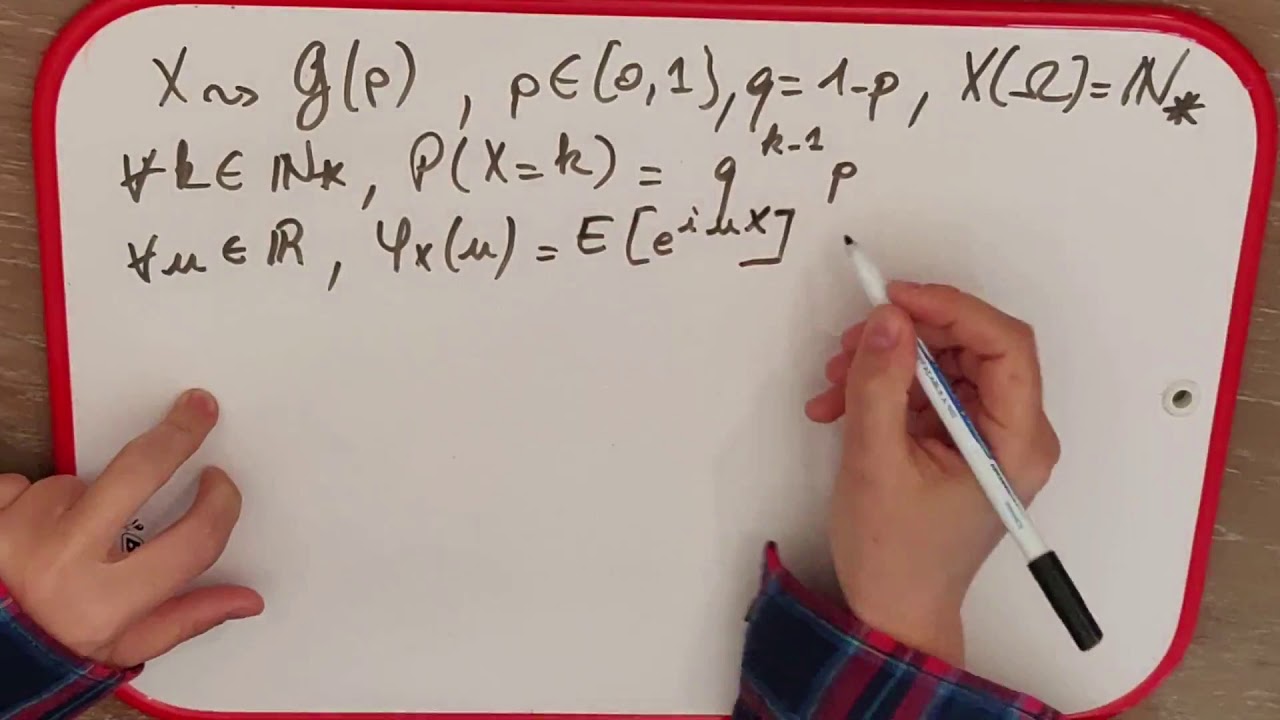 X ⤳ G(p) , p∈(0,1), q=1-p, X(Ω)=ℕ*
∀k∈ℕ*, P(X=k) = q^{k-1} p
∀u∈ℝ, φ_X(u) = E[e^{iuX}]